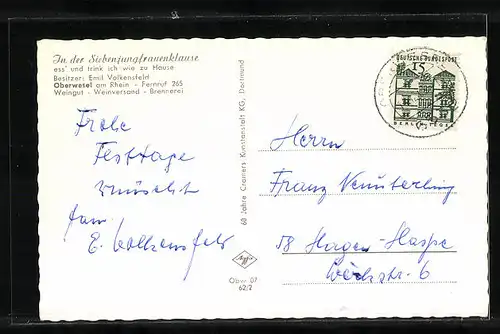 In der Siebenjungfrauenklause
ess' und trink ich wie zu Hause
Besitzer: Emil Volkensfeld
Oberwesel am Rhein - Fernruf 265
Weingut - Weinversand - Brennerei
Frohe
Festtage
wünscht
fam
E. Volkensfeld
68 Jahre Cramers Kunstanstalt KG, Dortmund
Agfa
Obw 07
62/2
DEUTSCHE BUNDESPOST
BERLIN TEGEL
Herrn
Franz
58 Hagen-Haspe
6